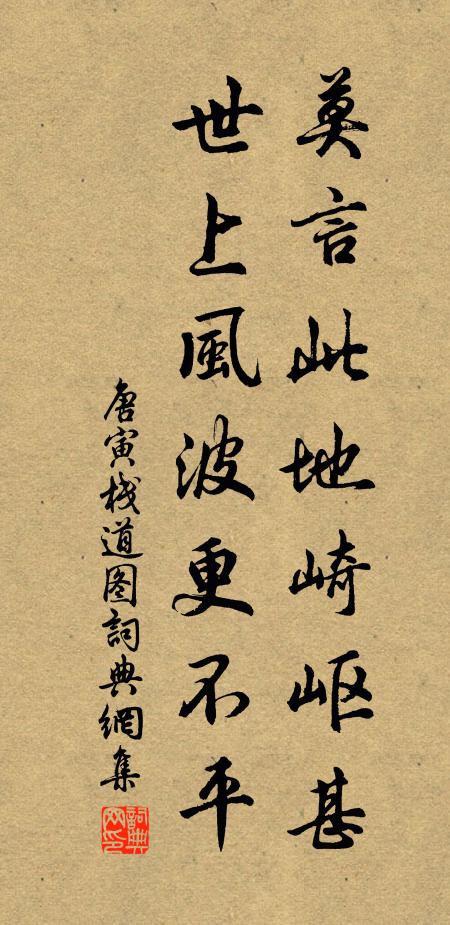 莫言此地崎岖甚
世上風波更不平
唐寅栈道图詞典網集
詞典网印